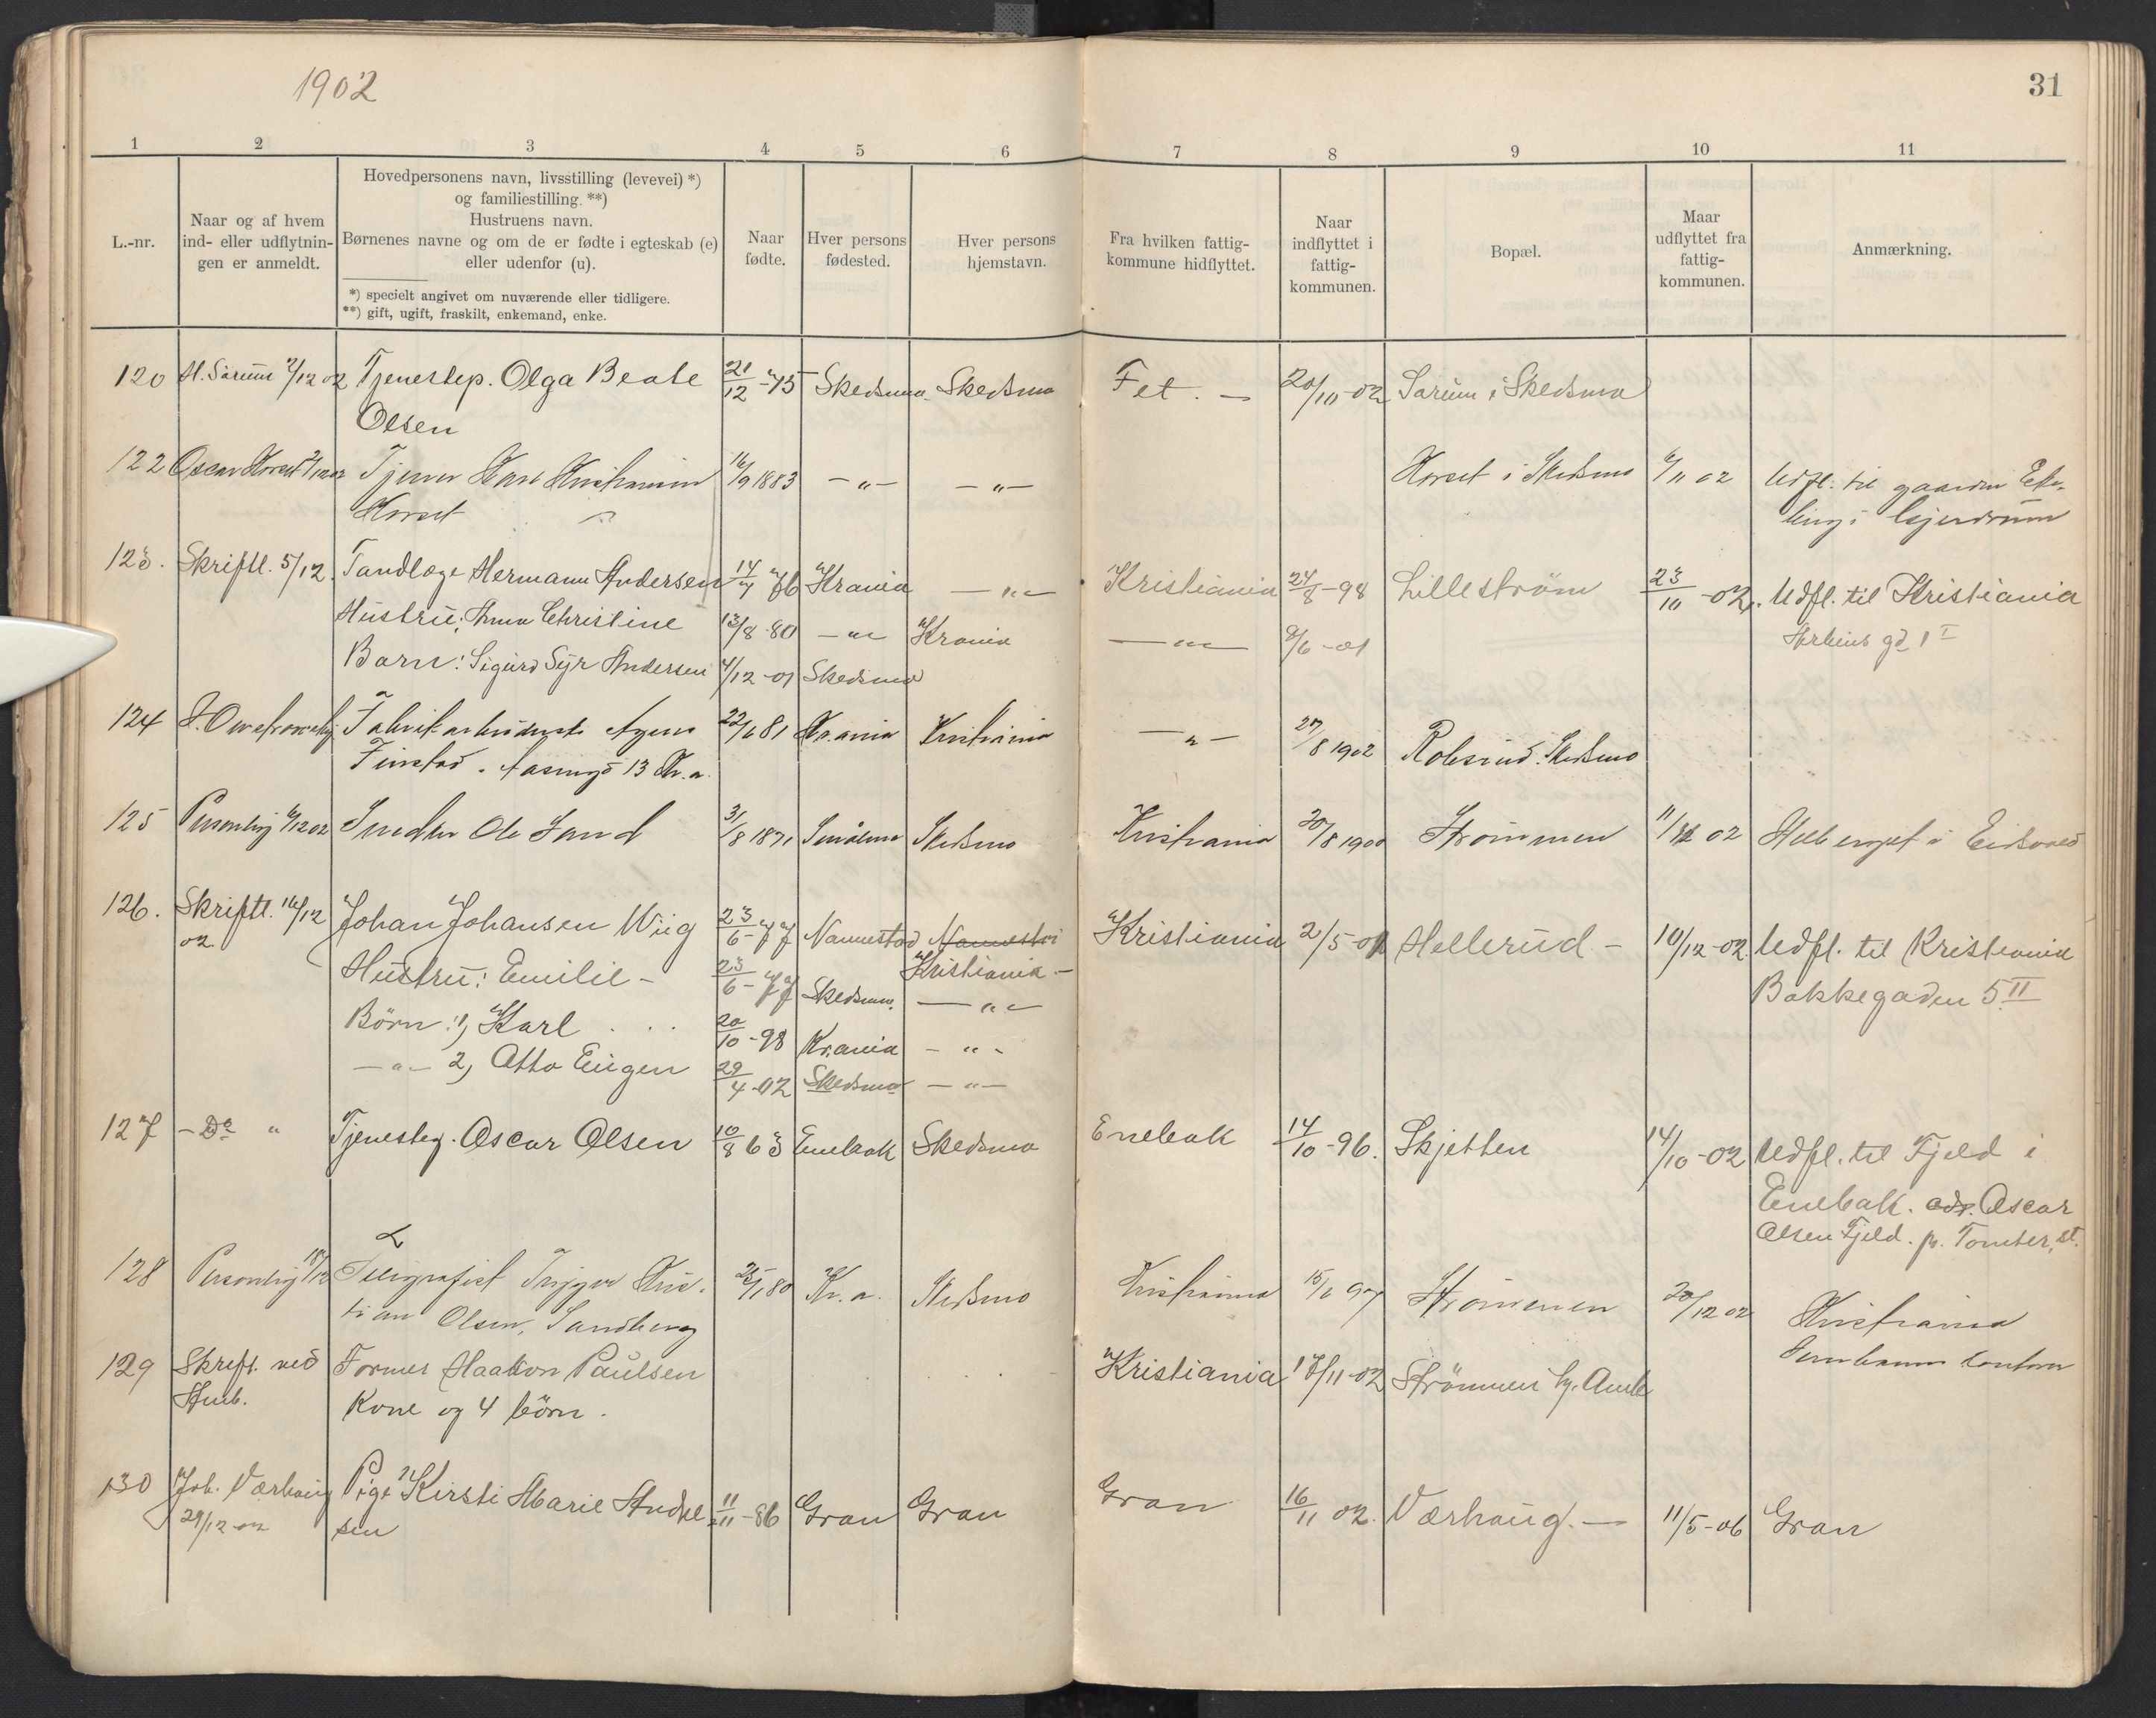 1902
31
1 2 3 4 5 6 7 8 9 10 11
L.-nr.
Naar og af hvem
ind- eller udflytnin-
gen er anmeldt.
Hovedpersonens navn, livsstilling (levevei) *)
og familiestilling. **)
Hustruens navn.
Børnenes navne og om de er fødte i egteskab (e)
eller udenfor (u).
*) specielt angivet om nuværende eller tidligere.
**) gift, ugift, fraskilt, enkemand, enke.
Naar
fødte.
Hver persons
fødested.
Hver persons
hjemstavn.
Fra hvilken fattig-
kommune hidflyttet.
Naar
indflyttet i
fattig-
kommunen.
Bopæl.
Maar
udflyttet fra
fattig-
kommunen.
Anmærkning.
120 Tjenestep. Olga Beate 21/12 -75 Skedsmo Skedsmo Fet. — 20/10-02 Sørum i Skedsmo
Olsen
122 Oscar Horset Horset i Skedsmo 6/11 02 Udfl. til gaarden
16/9 1883 —"— —"—
Horset i Gjerdrum
123. Skriftl. 5/12. Tandlæge Hermann Andersen 14/7 76 Krania —"— Kristiania 24/8-98 Lilleström 23/10 -02. Udfl. til Kristiania
Hustru: Anna Christine 13/8-80 —"— Krania —"— 8/6-01
Barn: Sigurd Syr Andersen 4/12-01 Skedsmo
124 Fabrikarbeiderske Agnes 22/6 81 Kr.ania Kristiania —"— 27/8 1902 Skedsmo
Finstad. 13 Kr.a.
125 Personlig 6/12 02 Smeder Ole Sand 3/8 1871 Skedsmo Kristiania 20/8 1900 Strømmen 02 i Eidsvold
126. Skriftl. 16/12 Johan Johansen Wiig 23/6-77 Nannestad Nannestad Kristiania 2/5-01 Hellerud - 10/12-02. Udfl. til Kristiania
02. Kristiania -
Hustru: Emilie - 23/6-77 Skedsmo —"— Bakkegaden 5 II
Børn: 1, Karl . . . 20/10-98 Krania - " -
—"— 2, Otto Eugen 29/4-02 Skedsmo —"—
127 - Do " Tjenesteg. Oscar Olsen 10/8 63 Enebak Skedsmo Enebak 14/10-96. Skjetten 14/10-02 Udfl. til Fjeld i
Enebak. adr. Oscar
Olsen Fjeld. p. Tomter, st.
128 Personlig 18/12 Telegrafist Trygve Kris- 80 Kr.a. Skedsmo Kristiania 15/6 97 Strømmen 20/12 02 Kristiania
tian Olsen, Sandberg
129 Skriftl. ved Former Haakon Paulsen Kristiania 17/11-02 Strömmen
Kone og 4 börn.
130 Joh. Værhaug Pige Kirsti Marie Andre 11/11-86 Gran Gran Gran 16/11 02. Værhaug. — 11/5-06 Gran
29/12-02 sen